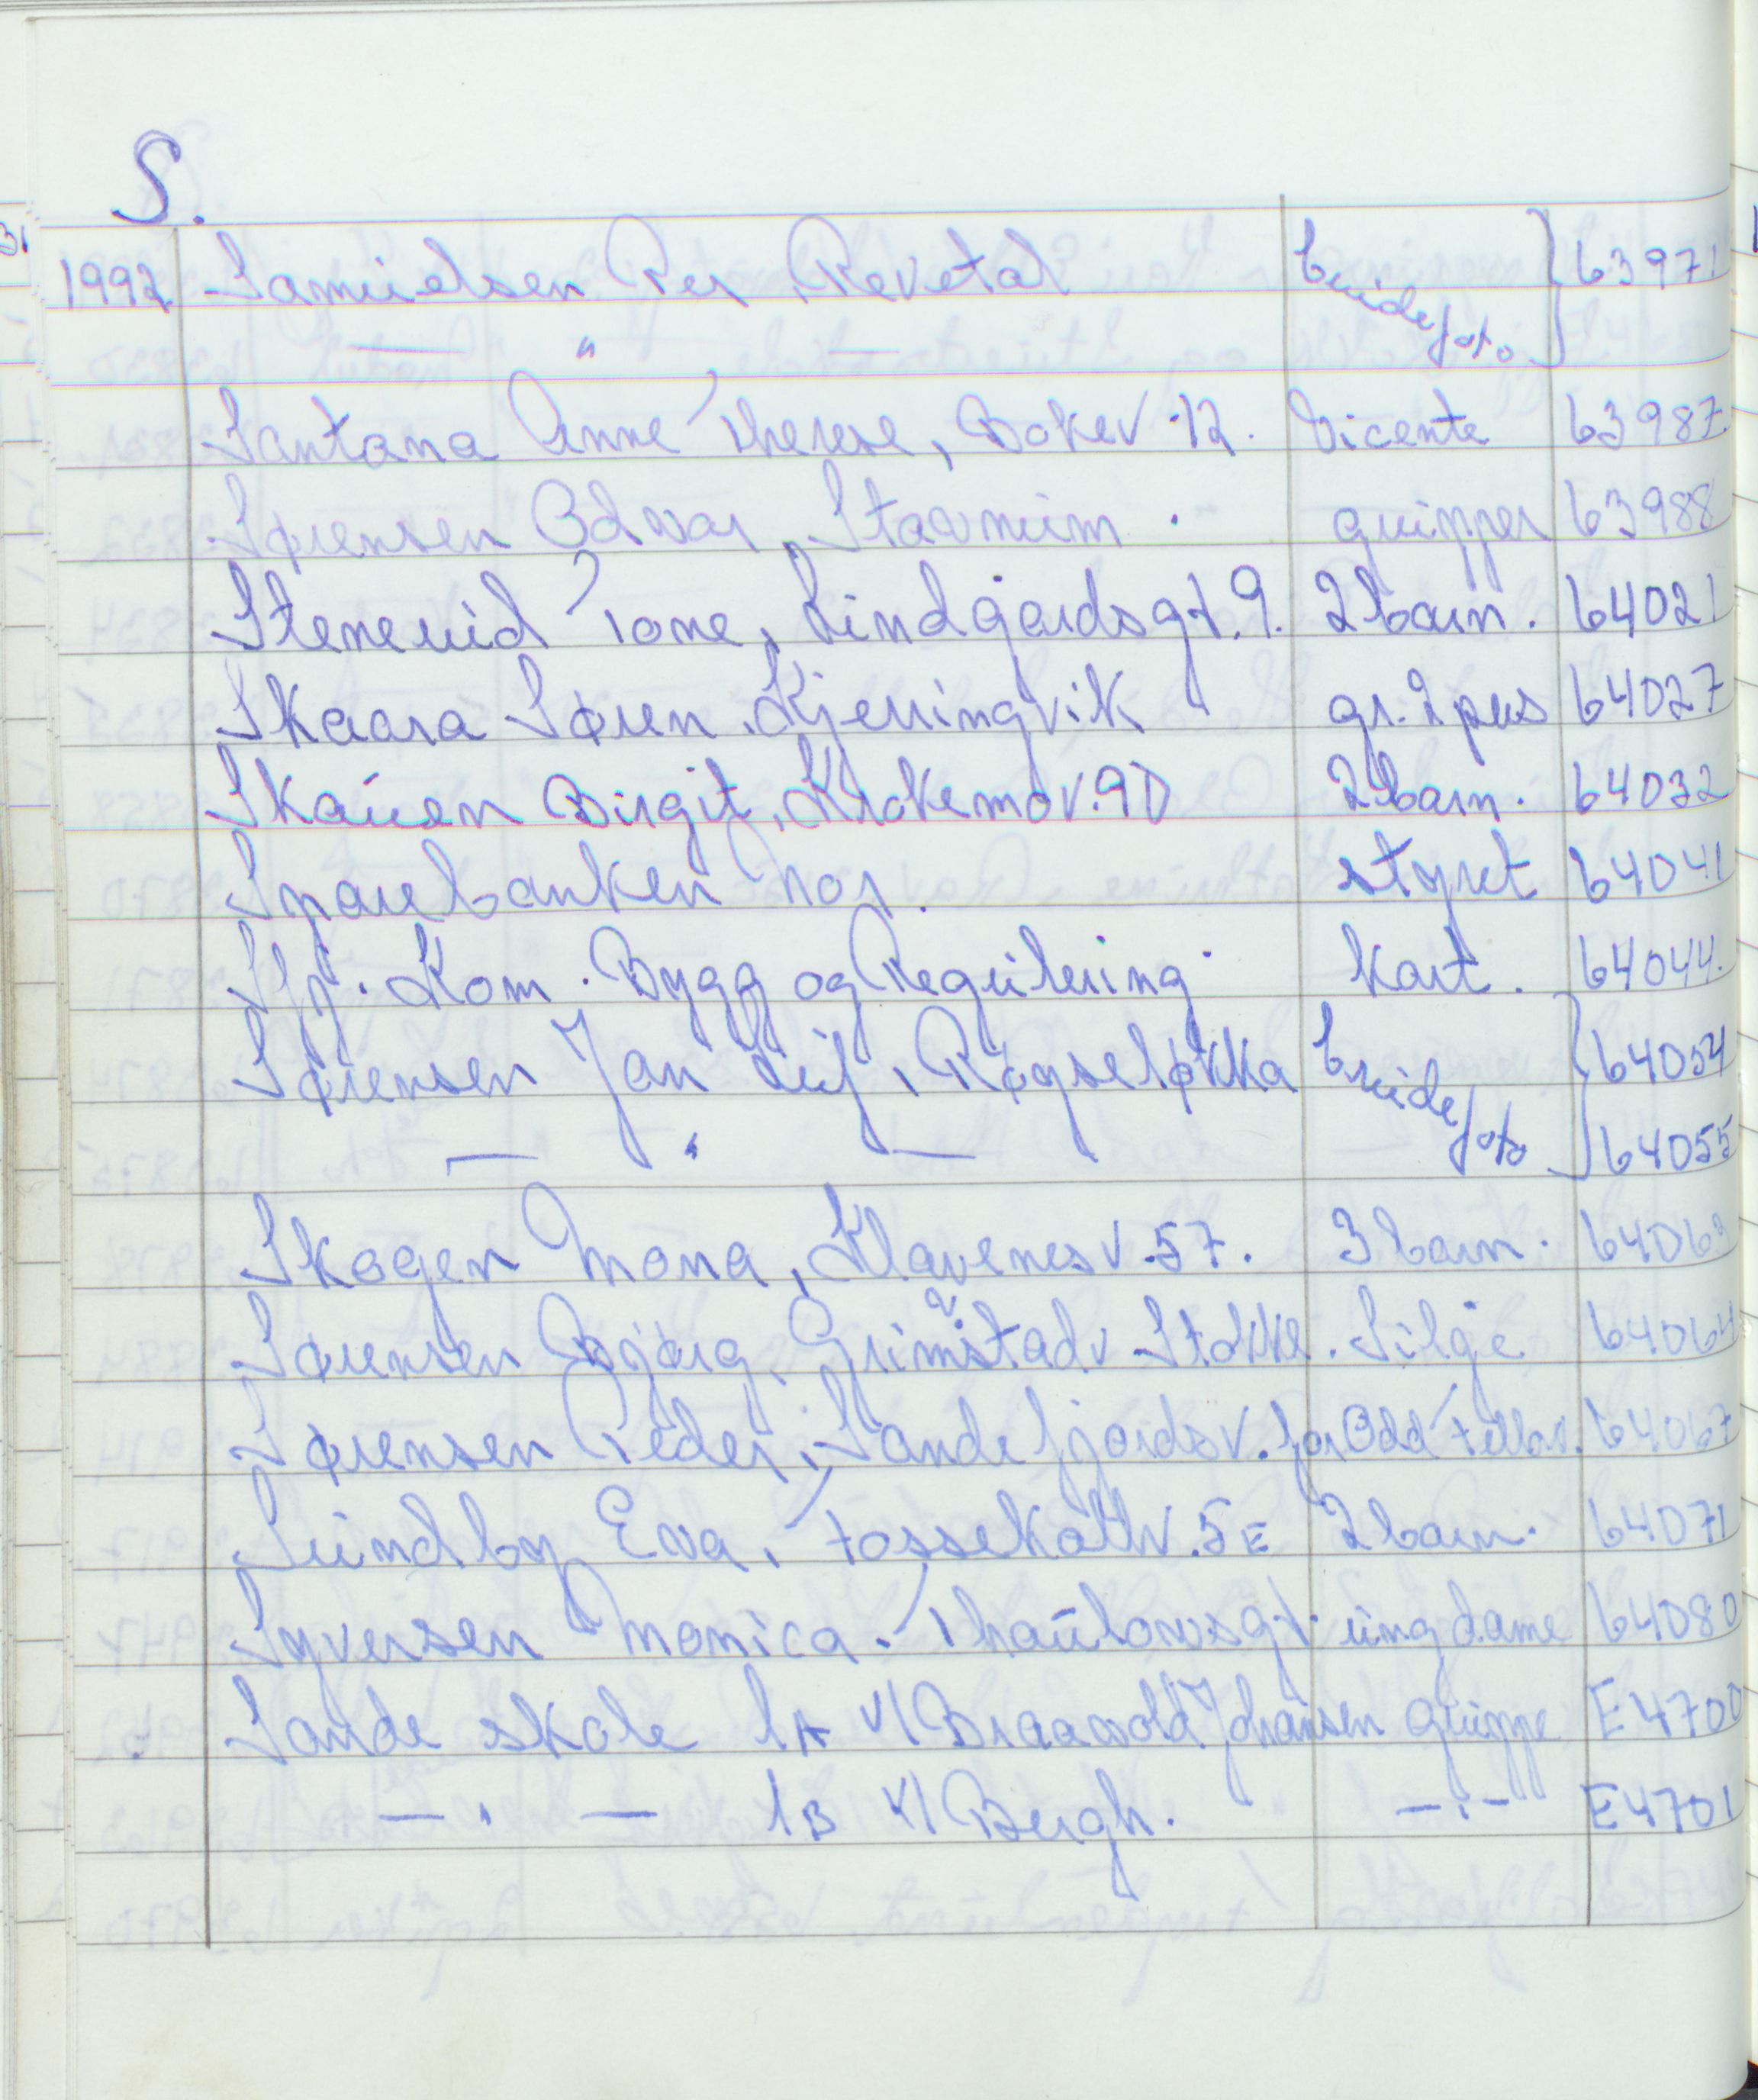 S.
1992 Samuelsen Per Revetal brudefoto } 63971
— " —
Santana Anne Therese, Bokev 12. Vicente 63987.
Sørensen Odvar, Stavnum. grupper 63988
Stenerud Tone, Lindgaardsgt. 9. 2 barn. 64021
Skaara Søren, Kjerringvik gr. 2 pers 64027
Skauen Birgit, Krokemov. 9D 2 barn. 64032
Sparebanken Nor. styret 64041
Sfj. Kom. Bygg og Regulering. Kart. 64044.
Sørensen Jan Leif, Røyseløkka brudefoto } 64054
— " — 64055
Skogen Mona, Klavenesv. 57. 3 barn.
Sørensen Bjørg, Grimstadv Stokke. Silje 64064
Sørensen Peder, Sandefjordsv. for Odd Fellow. 64067
Sundby Eva, Fossekallv. 5E 2 barn. 64071
Syversen Monica. Thaulowsgt. ung dame 64080
Sande skole 1A v/ Johansen Gruppe E4700
— " — 1B v/ Bergh. — " — E4701